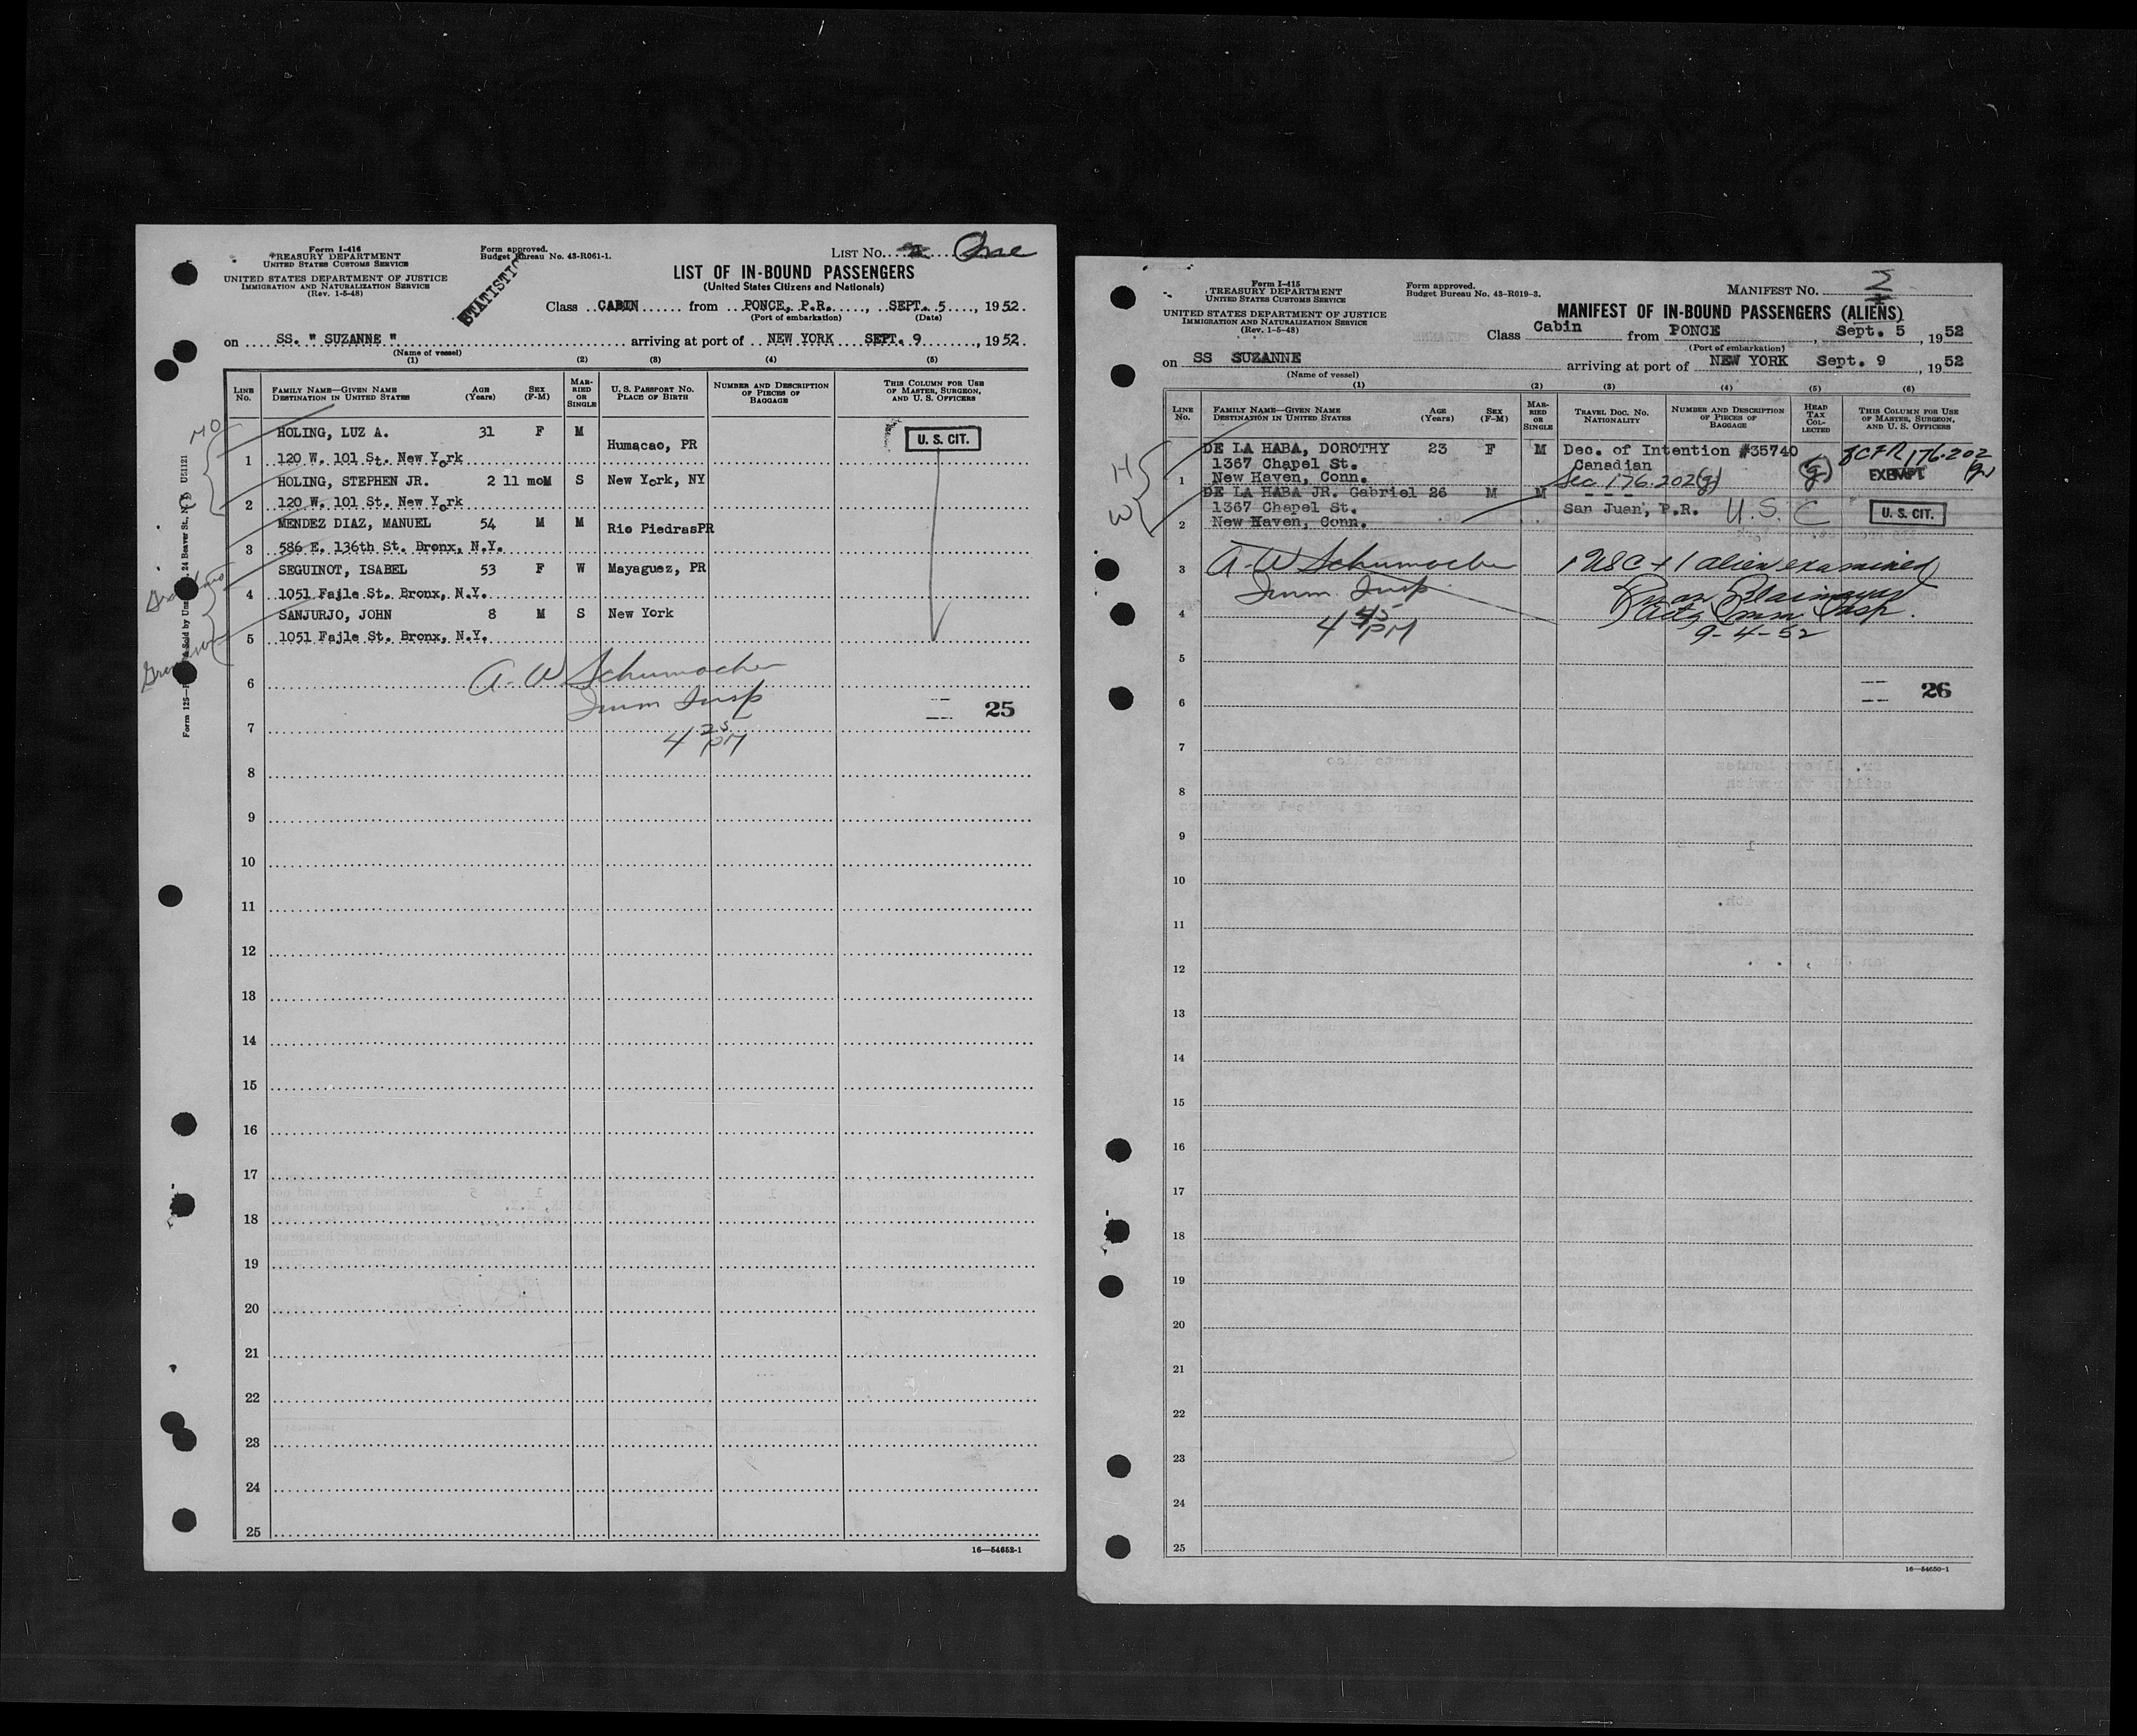 Form I-416
TREASURY DEPARTMENT
UNITED STATES CUSTOMS SERVICE
UNITED STATES DEPARTMENT OF JUSTICE
IMMIGRATION AND NATURALIZATION SERVICE
(Rev. 1-5-48)
Form approved.
Budget Bureau No. 43-R061-1.
LIST No. One
STATISTIC
LIST OF IN-BOUND PASSENGERS
(United States Citizens and Nationals)
Class CABIN from PONCE, P.R., SEPT. 5, 1952.
(Port of embarkation) (Date)
on SS. " SUZANNE " arriving at port of NEW YORK SEPT. 9, 1952.
(Name of vessel)
(1) (2) (3) (4) (5)
LINE No. FAMILY NAME—GIVEN NAME DESTINATION IN UNITED STATES AGE (Years) SEX (F-M) MARRIED OR SINGLE U. S. PASSPORT NO. PLACE OF BIRTH NUMBER AND DESCRIPTION OF PIECES OF BAGGAGE THIS COLUMN FOR USE OF MASTER, SURGEON, AND U. S. OFFICERS
MO
HOLING, LUZ A. 31 F M Humacao, PR U. S. CIT.
1 120 W. 101 St. New York
HOLING, STEPHEN JR. 2 11 mo M S New York, NY
2 120 W. 101 St. New York
MENDEZ DIAZ, MANUEL 54 M M Rio Piedras PR
3 586 E. 136th St. Bronx, N.Y.
SEGUINOT, ISABEL 53 F W Mayaguez, PR
4 1051 Faile St. Bronx, N.Y.
SANJURJO, JOHN 8 M S New York
5 1051 Faile St. Bronx, N.Y.
A. W. Schumacher
6
Imm Insp
25
7
4 25 PM
8
9
10
11
12
13
14
15
16
17
18
19
20
21
22
23
24
25
16—54652-1
Form I-415
TREASURY DEPARTMENT
UNITED STATES CUSTOMS SERVICE
UNITED STATES DEPARTMENT OF JUSTICE
IMMIGRATION AND NATURALIZATION SERVICE
(Rev. 1-5-48)
Form approved.
Budget Bureau No. 43-R019-3.
MANIFEST No. 2
MANIFEST OF IN-BOUND PASSENGERS (ALIENS)
Class Cabin from PONCE, Sept. 5, 1952
(Port of embarkation)
on SS SUZANNE arriving at port of NEW YORK Sept. 9, 1952
(Name of vessel)
(1) (2) (3) (4) (5) (6)
LINE No. FAMILY NAME—GIVEN NAME DESTINATION IN UNITED STATES AGE (Years) SEX (F-M) MARRIED OR SINGLE TRAVEL DOC. NO. NATIONALITY NUMBER AND DESCRIPTION OF PIECES OF BAGGAGE HEAD TAX COLLECTED THIS COLUMN FOR USE OF MASTER, SURGEON, AND U. S. OFFICERS
DE LA HABA, DOROTHY 23 F M Dec. of Intention #35740 8 CFR 176.202
H 1367 Chapel St. Canadian (g) EXEMPT (g)
1 New Haven, Conn. Sec 176.202(g)
DE LA HABA JR. Gabriel 26 M M - - -
W 1367 Chapel St. San Juan, P.R. U.S.C U. S. CIT.
2 New Haven, Conn.
3 A. W. Schumacher 1 USC + 1 alien examined
Imm. Insp
4
4 45 PM Insp.
9-4-52
5
6 26
7
8
9
10
11
12
13
14
15
16
17
18
19
20
21
22
23
24
25
16—54650-1